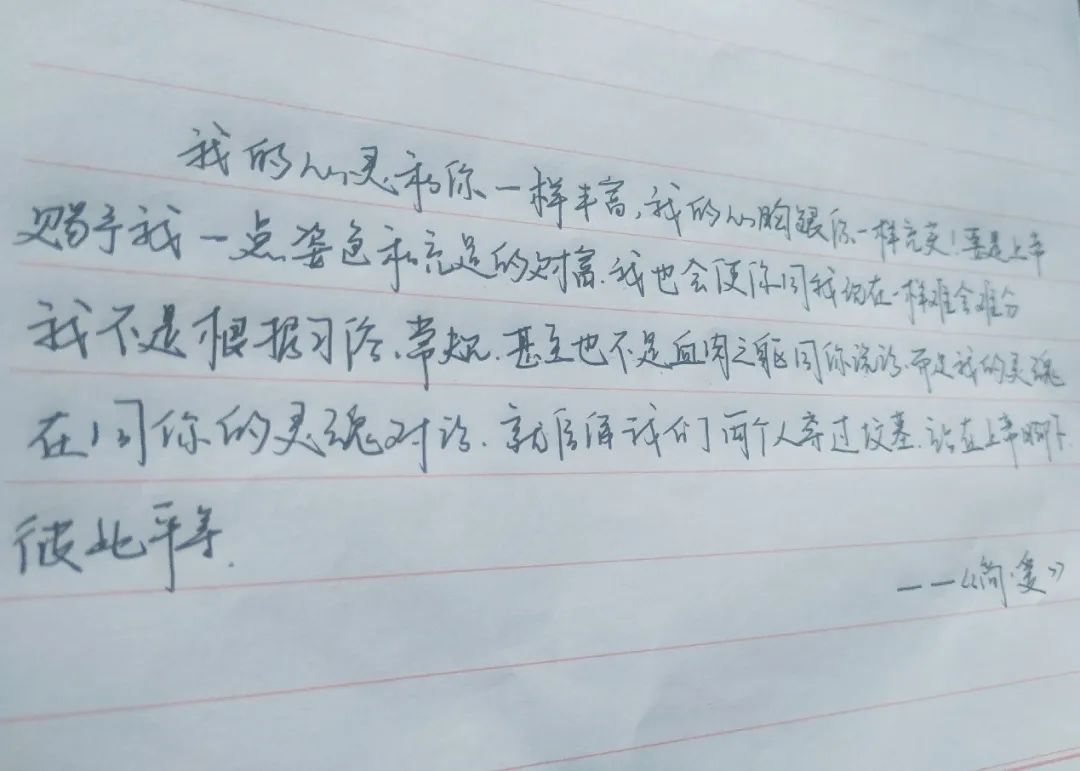 我的心灵和你一样丰富,我的心胸跟你一样充实!要是上帝
赐予我一点姿色和充足的财富.我也会使你同我现在一样难舍难分
我不是根据习俗、常规.甚至也不是血肉之躯同你说话.而是我的灵魂
在同你的灵魂对话.就仿佛我们两个人穿过坟墓.站在上帝脚下.
彼此平等.
——《简·爱》